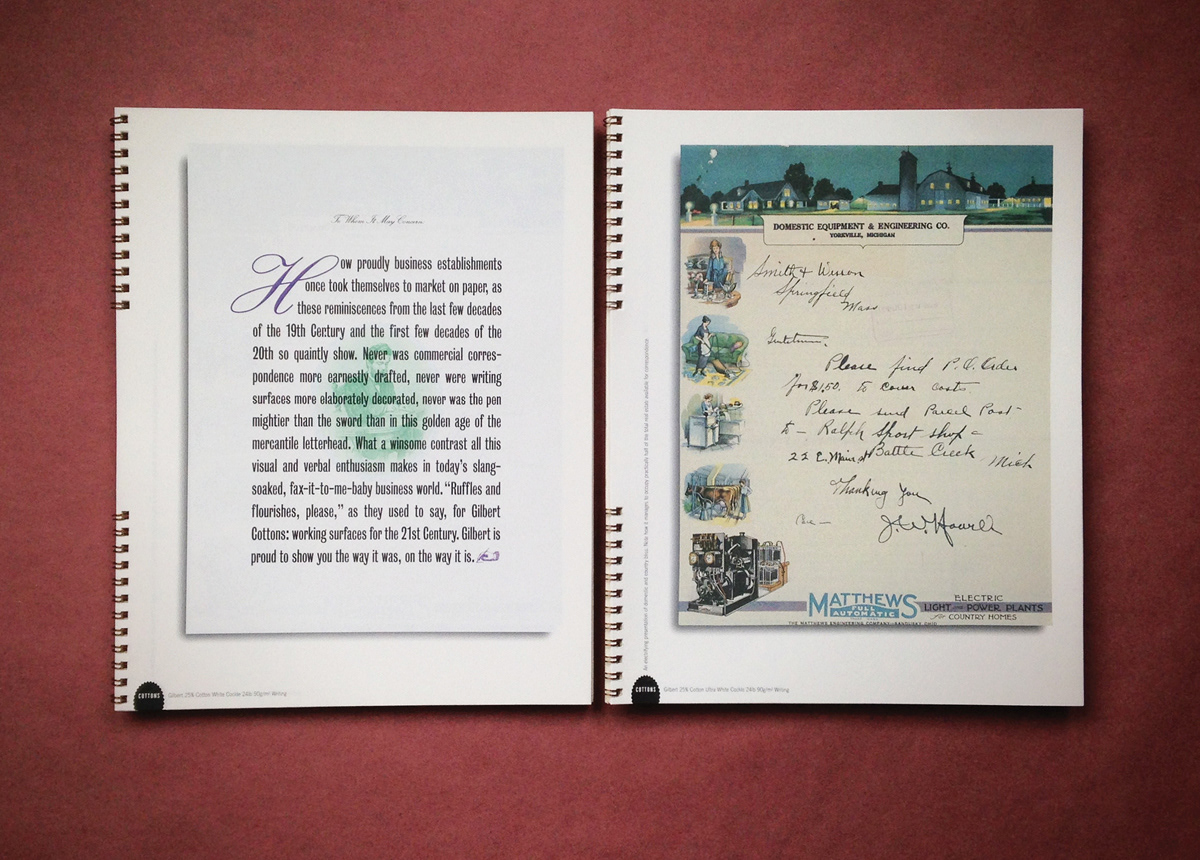 To Whom It May Concern
How proudly business establishments
once took themselves to market on paper, as
these reminiscences from the last few decades
of the 19th Century and the first few decades of the
20th so quaintly show. Never was commercial corres-
pondence more earnestly drafted, never were writing
surfaces more elaborately decorated, never was the pen
mightier than the sword than in this golden age of the
mercantile letterhead. What a winsome contrast all this
visual and verbal enthusiasm makes in today's slang-
soaked, fax-it-to-me-baby business world. “Ruffles and
flourishes, please,” as they used to say, for Gilbert
Cottons: working surfaces for the 21st Century. Gilbert is
proud to show you the way it was, on the way it is.
COTTONS
Gilbert 25% Cotton White Cockle 24lb 90g/m² Writing
An electrifying presentation of domestic and country bliss. Note how it manages to occupy practically half of the total real estate available for correspondence.
DOMESTIC EQUIPMENT & ENGINEERING CO.
YORKVILLE, MICHIGAN
Smith & Wesson
Springfield
Mass
Gentlemen,
Please find P.O. Order
for $1.50. to cover costs.
Please send Parcel Post
to — Ralph Sport Shop —
22 E. Main st Battle Creek Mich
Thanking You
J.W. Howell
MATTHEWS
FULL
AUTOMATIC
ELECTRIC
LIGHT AND POWER PLANTS
for COUNTRY HOMES
THE MATTHEWS ENGINEERING COMPANY - SANDUSKY, OHIO
COTTONS
Gilbert 25% Cotton Ultra White Cockle 24lb 90g/m² Writing